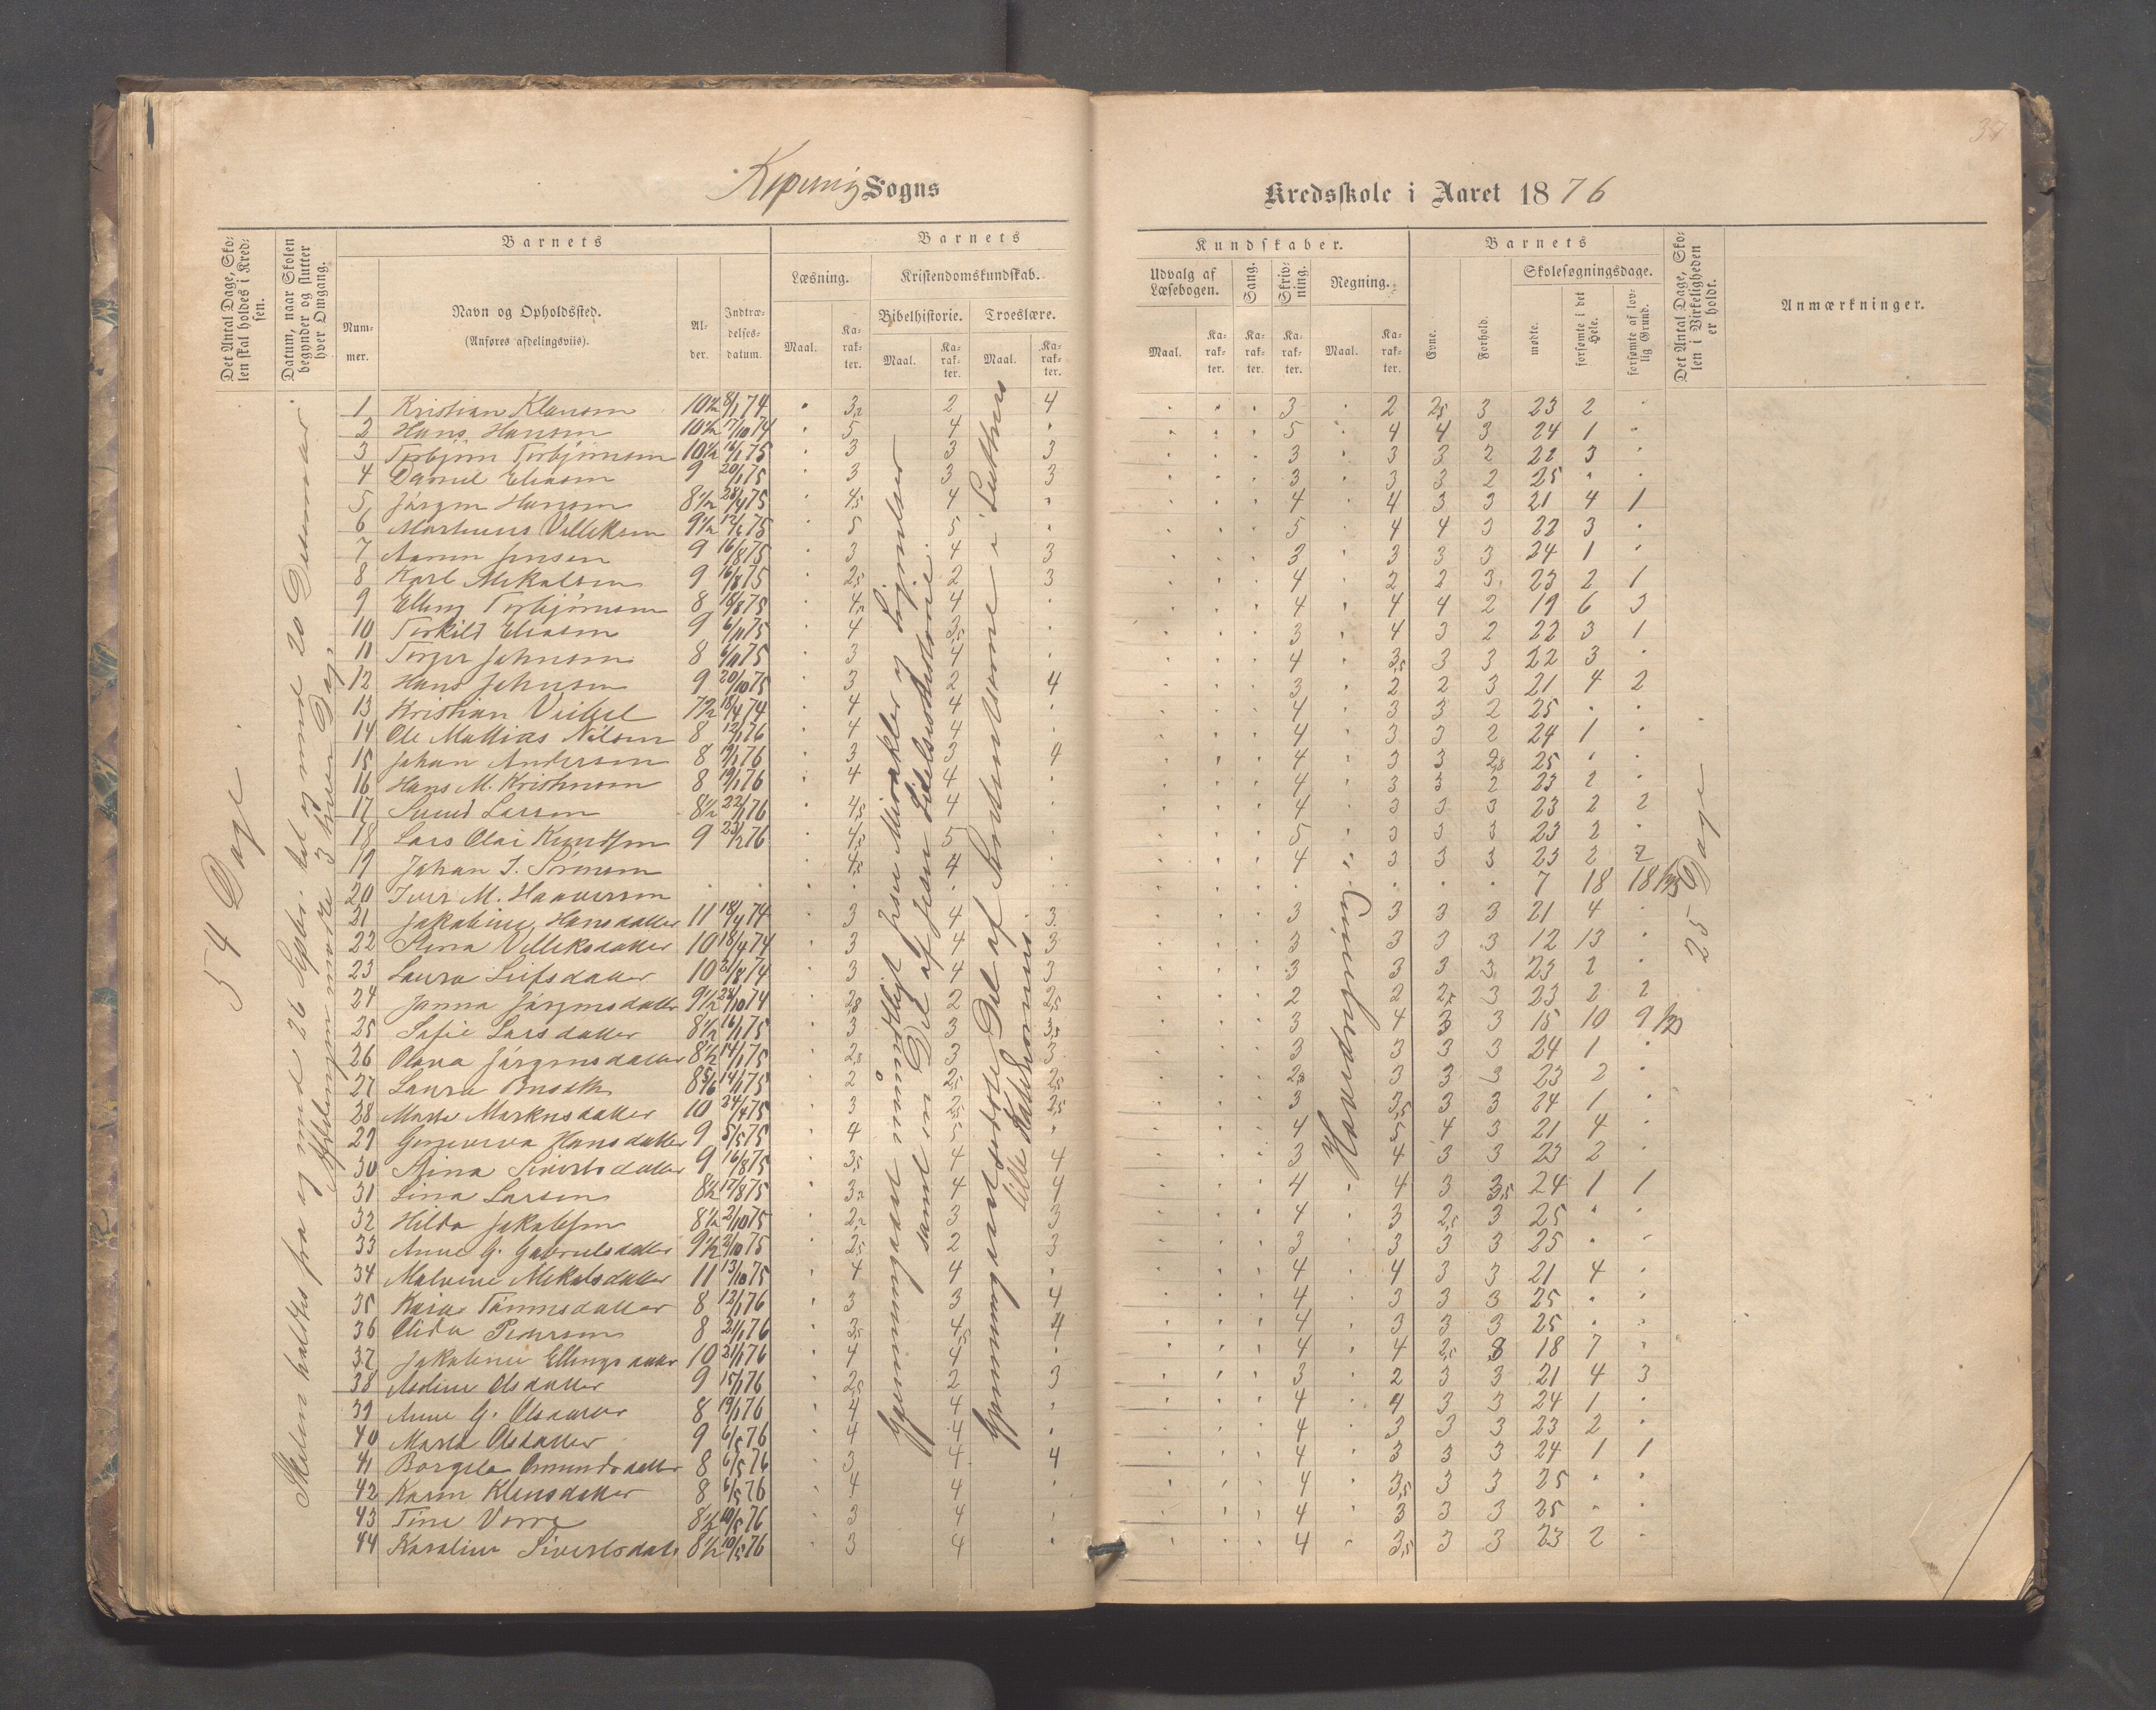 37
Sogns Kredsskole i Aaret 1876
Det Antal Dage, Skolen skal holdes i Kredsen.
Datum, naar Skolen begynder og slutter hver Omgang.
Barnets
Nummer.
Navn og Opholdssted.
(Anføres afdelingsviis).
Alder.
Indtrædelsesdatum.
Barnets Kundskaber.
Læsning.
Maal.
Karakter.
Kristendomskundskab.
Bibelhistorie.
Maal.
Karakter.
Troeslære.
Maal.
Karakter.
Udvalg af Læsebogen.
Maal.
Karakter.
Sang.
Karakter.
Skrivning.
Karakter.
Regning.
Maal.
Karakter.
Barnets
Evne.
Forhold.
Skolesøgningsdage.
mødte.
forsømte i det Hele.
forsømte af lovlig Grund.
Det Antal Dage, Skolen i Virkeligheden er holdt.
Anmærkninger.
54 Dage.
Skolen holdtes fra og med 26 Septbr. til og med 20 December.
Afdelingen mødte 3 hver Dag.
25 Dage
1 Kristian Klausen 10½ 8/1 74 3 2 4 3 2 2,5 3 23 2
2 Hans Hansen 10½ 17/10 74 5 4 5 4 4 3 24 1
3 Torbjörn Torbjörnsen 10½ 16/1 75 3 3 3 3 3 3 2 22 3
4 Daniel Eliasen 9 20/1 75 3 3 3 3 3 3 2 25
5 Jörgen Hansen 8½ 28/4 75 4,5 4 4 4 3 3 21 4 1
6 Martinius Villiksen 9½ 5 5 5 4 4 3 22 3
7 Aanen Jensen 9 16/8 75 3 4 3 3 3 3 3 24 1
8 Karl Mikalsen 9 16/8 75 2,5 2 3 4 2 2 3 23 2 1
9 Elling Torbjörnsen 8 18/8 75 4 4 4 4 2 19 6 3
10 Torkild Eliasen 9 6/11 75 4 3,5 3 4 3 2 22 3 1
11 Torger Johnsen 8 6/11 75 3 4 4 3,5 3 3 22 3
12 Hans Johnsen 9 20/10 75 3 2 4 3 2 2 3 21 4 2
13 Kristian Veibel 7½ 18/4 74 4 4 4 3 3 2 25
14 Ole Mathias Nilsen 8 12/1 76 4 4 4 3 3 2 24 1
15 Johan Andersen 8 19/1 76 3 3 4 4 3 3 2,8 25
16 Hans M. Kristensen 8 19/1 76 4 4 4 3 3 2 23 2
17 Larsen 8½ 22/1 76 4,5 4 4 3 3 3 23 2 2
18 Lars Olai Knudsen 9 23/2 76 4,5 5 5 3 3 3 23 2
19 Johan S. Sörensen 4,5 4 4 3 3 3 23 2 2
20 Iver M. Haaversen 7 18 18
21 Jakobine Hansdatter 11 18/4 74 3 4 3 3 3 3 3 21 4
22 Stina Villiksdatter 10 18/4 74 3 4 3 3 3 3 3 12 13
23 Laura Leifsdatter 10 21/8 74 3 4 3 3 3 3 3 23 2
24 Janna Jörgensdatter 9½ 24/10 74 2,8 2 2,5 2 2 2,5 3 23 2 2
25 Sofie Larsdatter 8½ 16/1 75 3 3 3,5 3 4 3 3 15 10 9
26 Olava Jörgensdatter 8½ 14/1 75 2,8 3 3 3 3 3 3 24 1
27 Laura 8 5/6 14/1 75 2 2,5 2,5 2,8 3 3 3 23 2
28 Marta Markusdatter 10 24/4 75 3 2,5 2,5 3 3,5 3 3 24 1
29 Hansdatter 9 5/5 75 4 5 4 5 4 3 21 4
30 Stina Sivertsdatter 9 16/8 75 3,5 4 4 3 4 3 3 23 2
31 Lina Larsen 8½ 17/8 75 3 4 4 4 4 3 3,5 24 1 1
32 Hilda Jakobsen 8½ 2/10 75 2 3 3 4 3 2,5 3 25
33 Anne G. Gabrielsdatter 9½ 2/10 75 2,5 2 3 3 3 3 3 25
34 Malvine Mikalsdatter 11 13/10 75 4 4 4 4 3 3 21 4
35 Kaia Tönnesdatter 8 12/1 76 3 3 4 4 3 3 3 25
36 Olida Pedersen 8 21/1 76 3,5 4,5 4 4 3 3 3 25
37 Jakobine Ellingsdatter 10 21/1 76 4 4 4 4 2,5 3 18 7
38 Aseline Olsdatter 9 15/1 76 2,5 2 3 3 2 3 3 21 4 3
39 Anne G. Olsdatter 8 19/1 76 4 4 4 4 3 3 24 1
40 Marta Olsdatter 9 6/5 76 4 4 4 3 3 3 23 2
41 Borgila Omundsdatter 8 6/5 76 3 4 4 4 3 3 3 24 1 1
42 Karen Klausdatter 8 6/5 76 4 4 4 3,5 3 3 25
43 Tine Vorre 8½ 10/5 76 3 4 4 3 3 3 25
44 Karoline Sivertsdatt 8½ 10/5 76 3 4 4 3,5 3 3 23 2
Gjennemgaaet mundtligt Jesu Mirakler og Lignelser
samt en Del af Jesu Lidelseshistorie.
Gjennemgaaet sidste Del af Sandhedsordene i Luthers
lille Katekismus.